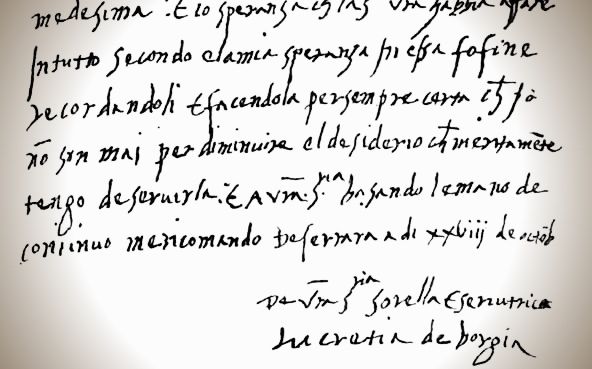 medesima. E io speranza
In tutto secondo la mia speranza fo fine
recordandoli e facendola per sempre certa ch io
nō son mai per diminuire el desiderio ch meritamēte
tengo de seruirla. E A vr̄a. S.ria basando le mano de
continuo me ricomando De ferrara a di xxviij de octob
De vr̄a S ria sorella E seruitrice
Lucretia de borgia